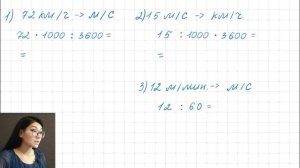 1) 72 км/ч → м/с
72 · 1000 : 3600 =
=
2) 15 м/с → км/ч
15 : 1000 · 3600 =
=
3) 12 м/мин. → м/с
12 : 60 =